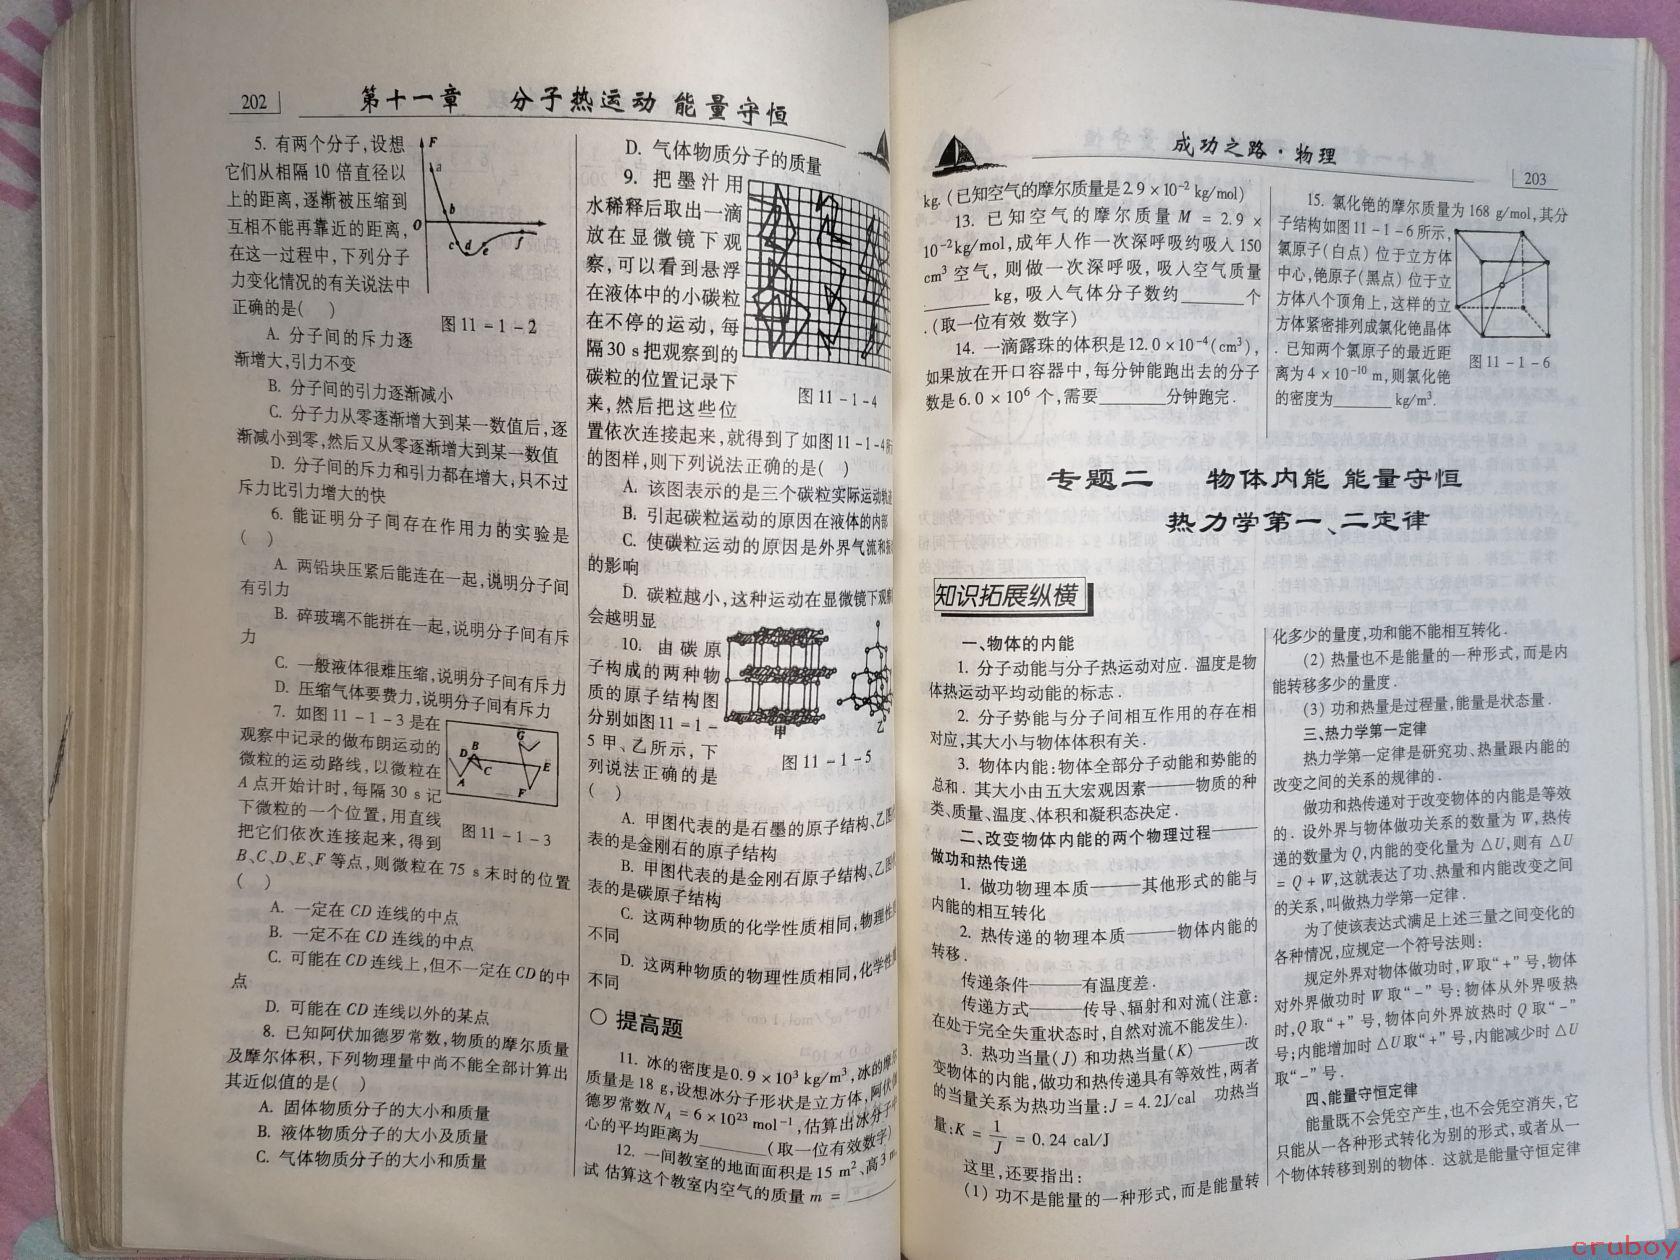 202
第十一章 分子热运动 能量守恒
5. 有两个分子,设想
它们从相隔 10 倍直径以
上的距离,逐渐被压缩到
互相不能再靠近的距离,
在这一过程中,下列分子
力变化情况的有关说法中
正确的是( )
F
a
b
O
c
d
e
f
r
图 11 - 1 - 2
A. 分子间的斥力逐
渐增大,引力不变
B. 分子间的引力逐渐减小
C. 分子力从零逐渐增大到某一数值后,逐
渐减小到零,然后又从零逐渐增大到某一数值
D. 分子间的斥力和引力都在增大,只不过
斥力比引力增大的快
6. 能证明分子间存在作用力的实验是
( )
A. 两铅块压紧后能连在一起,说明分子间
有引力
B. 碎玻璃不能拼在一起,说明分子间有斥
力
C. 一般液体很难压缩,说明分子间有斥力
D. 压缩气体要费力,说明分子间有斥力
7. 如图 11 - 1 - 3 是在
观察中记录的做布朗运动的
微粒的运动路线,以微粒在
A 点开始计时,每隔 30 s 记
下微粒的一个位置,用直线
把它们依次连接起来,得到
B、C、D、E、F 等点,则微粒在 75 s 末时的位置
( )
G
D B
C
E
A
F
图 11 - 1 - 3
A. 一定在 CD 连线的中点
B. 一定不在 CD 连线的中点
C. 可能在 CD 连线上,但不一定在 CD 的中
点
D. 可能在 CD 连线以外的某点
8. 已知阿伏加德罗常数,物质的摩尔质量
及摩尔体积,下列物理量中尚不能全部计算出
其近似值的是( )
A. 固体物质分子的大小和质量
B. 液体物质分子的大小及质量
C. 气体物质分子的大小和质量
D. 气体物质分子的质量
9. 把墨汁用
水稀释后取出一滴
放在显微镜下观
察,可以看到悬浮
在液体中的小碳粒
在不停的运动,每
隔 30 s 把观察到的
碳粒的位置记录下
来,然后把这些位
置依次连接起来,就得到了如图 11 - 1 - 4所
的图样,则下列说法正确的是( )
图 11 - 1 - 4
A. 该图表示的是三个碳粒实际运动轨
B. 引起碳粒运动的原因在液体的内部
C. 使碳粒运动的原因是外界气流和
的影响
D. 碳粒越小,这种运动在显微镜下观
会越明显
10. 由碳原
子构成的两种物
质的原子结构图
分别如图 11 - 1 -
5 甲、乙所示,下
列说法正确的是
( )
甲
乙
图 11 - 1 - 5
A. 甲图代表的是石墨的原子结构、乙图
表的是金刚石的原子结构
B. 甲图代表的是金刚石原子结构、乙图
表的是碳原子结构
C. 这两种物质的化学性质相同,物理性
不同
D. 这两种物质的物理性质相同,化学性
不同
○ 提高题
11. 冰的密度是0.9 × 10³ kg/m³,冰的摩
质量是 18 g,设想冰分子形状是立方体,阿伏
德罗常数 N_A = 6 × 10²³ mol⁻¹,估算出冰分子
心的平均距离为______(取一位有效数字)
12. 一间教室的地面面积是 15 m²、高 3 m
试 估算这个教室内空气的质量 m = ______
成功之路·物理
203
kg. (已知空气的摩尔质量是 2.9 × 10⁻² kg/mol)
13. 已知空气的摩尔质量 M = 2.9 ×
10⁻²kg/mol,成年人作一次深呼吸约吸入 150
cm³ 空气, 则做一次深呼吸, 吸入空气质量
______ kg, 吸入气体分子数约______个
.(取一位有效 数字)
14. 一滴露珠的体积是 12.0 × 10⁻⁴(cm³),
如果放在开口容器中,每分钟能跑出去的分子
数是 6.0 × 10⁶ 个,需要______分钟跑完.
15. 氯化铯的摩尔质量为 168 g/mol,其分
子结构如图 11 - 1 - 6 所示,
氯原子(白点)位于立方体
中心,铯原子(黑点)位于立
方体八个顶角上,这样的立
方体紧密排列成氯化铯晶体
. 已知两个氯原子的最近距
离为 4 × 10⁻¹⁰ m,则氯化铯
的密度为______ kg/m³.
图 11 - 1 - 6
专题二 物体内能 能量守恒
热力学第一、二定律
知识拓展纵横
一、物体的内能
1. 分子动能与分子热运动对应. 温度是物
体热运动平均动能的标志.
2. 分子势能与分子间相互作用的存在相
对应,其大小与物体体积有关.
3. 物体内能:物体全部分子动能和势能的
总和. 其大小由五大宏观因素——物质的种
类、质量、温度、体积和凝积态决定.
二、改变物体内能的两个物理过程——
做功和热传递
1. 做功物理本质——其他形式的能与
内能的相互转化
2. 热传递的物理本质——物体内能的
转移.
传递条件——有温度差.
传递方式——传导、辐射和对流(注意:
在处于完全失重状态时,自然对流不能发生).
3. 热功当量(J) 和功热当量(K) ——改
变物体的内能,做功和热传递具有等效性,两者
的当量关系为热功当量:J = 4.2J/cal 功热当
量:K = 1/J = 0.24 cal/J
这里,还要指出:
(1) 功不是能量的一种形式,而是能量转
化多少的量度,功和能不能相互转化.
(2) 热量也不是能量的一种形式,而是内
能转移多少的量度.
(3) 功和热量是过程量,能量是状态量.
三、热力学第一定律
热力学第一定律是研究功、热量跟内能的
改变之间的关系的规律的.
做功和热传递对于改变物体的内能是等效
的. 设外界与物体做功关系的数量为 W,热传
递的数量为 Q,内能的变化量为 △U,则有 △U
= Q + W,这就表达了功、热量和内能改变之间
的关系,叫做热力学第一定律.
为了使该表达式满足上述三量之间变化的
各种情况,应规定一个符号法则:
规定外界对物体做功时,W取“+”号,物体
对外界做功时 W 取“-”号;物体从外界吸热
时,Q 取“+”号,物体向外界放热时 Q 取“-”
号;内能增加时 △U 取“+”号,内能减少时 △U
取“-”号.
四、能量守恒定律
能量既不会凭空产生,也不会凭空消失,它
只能从一各种形式转化为别的形式,或者从一
个物体转移到别的物体. 这就是能量守恒定律
cruboy